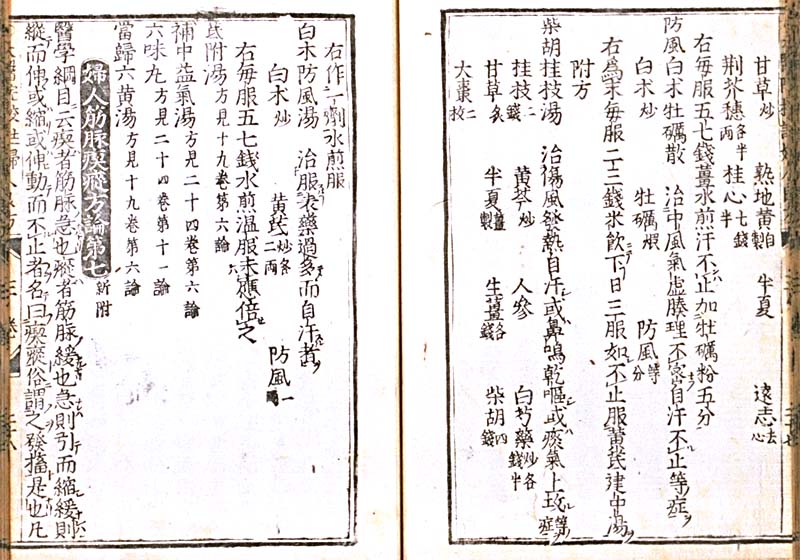 甘草炒　熟地黄自製　半夏　遠志去心
荆芥穗各半兩　桂心七錢半
右毎服五七錢薑水煎汗不止加牡礪粉五分
防風白术牡礪散　治中風氣虛腠理不密自汗不止等症
白术炒　牡礪煆　防風等分
右爲末毎服二三錢米飲下日三服如不止服黄芪建中湯
附方
柴胡桂技湯　治傷風發熱自汗或鼻鳴乾嘔或痰氣上攻等症
桂技二錢　黄芩炒　人參　白芍藥炒各錢半
甘草炙　半夏薑製　生薑各錢　柴胡四錢
大棗二枚
右作一劑水煎服
白术防風湯　治服表藥過多而自汗者
白术炒　黄芪炒各二兩　防風一兩
右毎服五七錢水煎溫服未應倍之
芪附湯　方見十九卷第六論
補中益氣湯　方見二十四卷第六論
六味丸　方見二十四卷第十一論
當歸六黄湯　方見十九卷第六論
婦人筋脉瘈瘲方論第七　新附
醫學綱目云瘈者筋脉急也瘲者筋脉緩也急則引而縮緩則
縱而伸或縮或伸動而不止者名曰瘈瘲俗謂之發搐是也凡